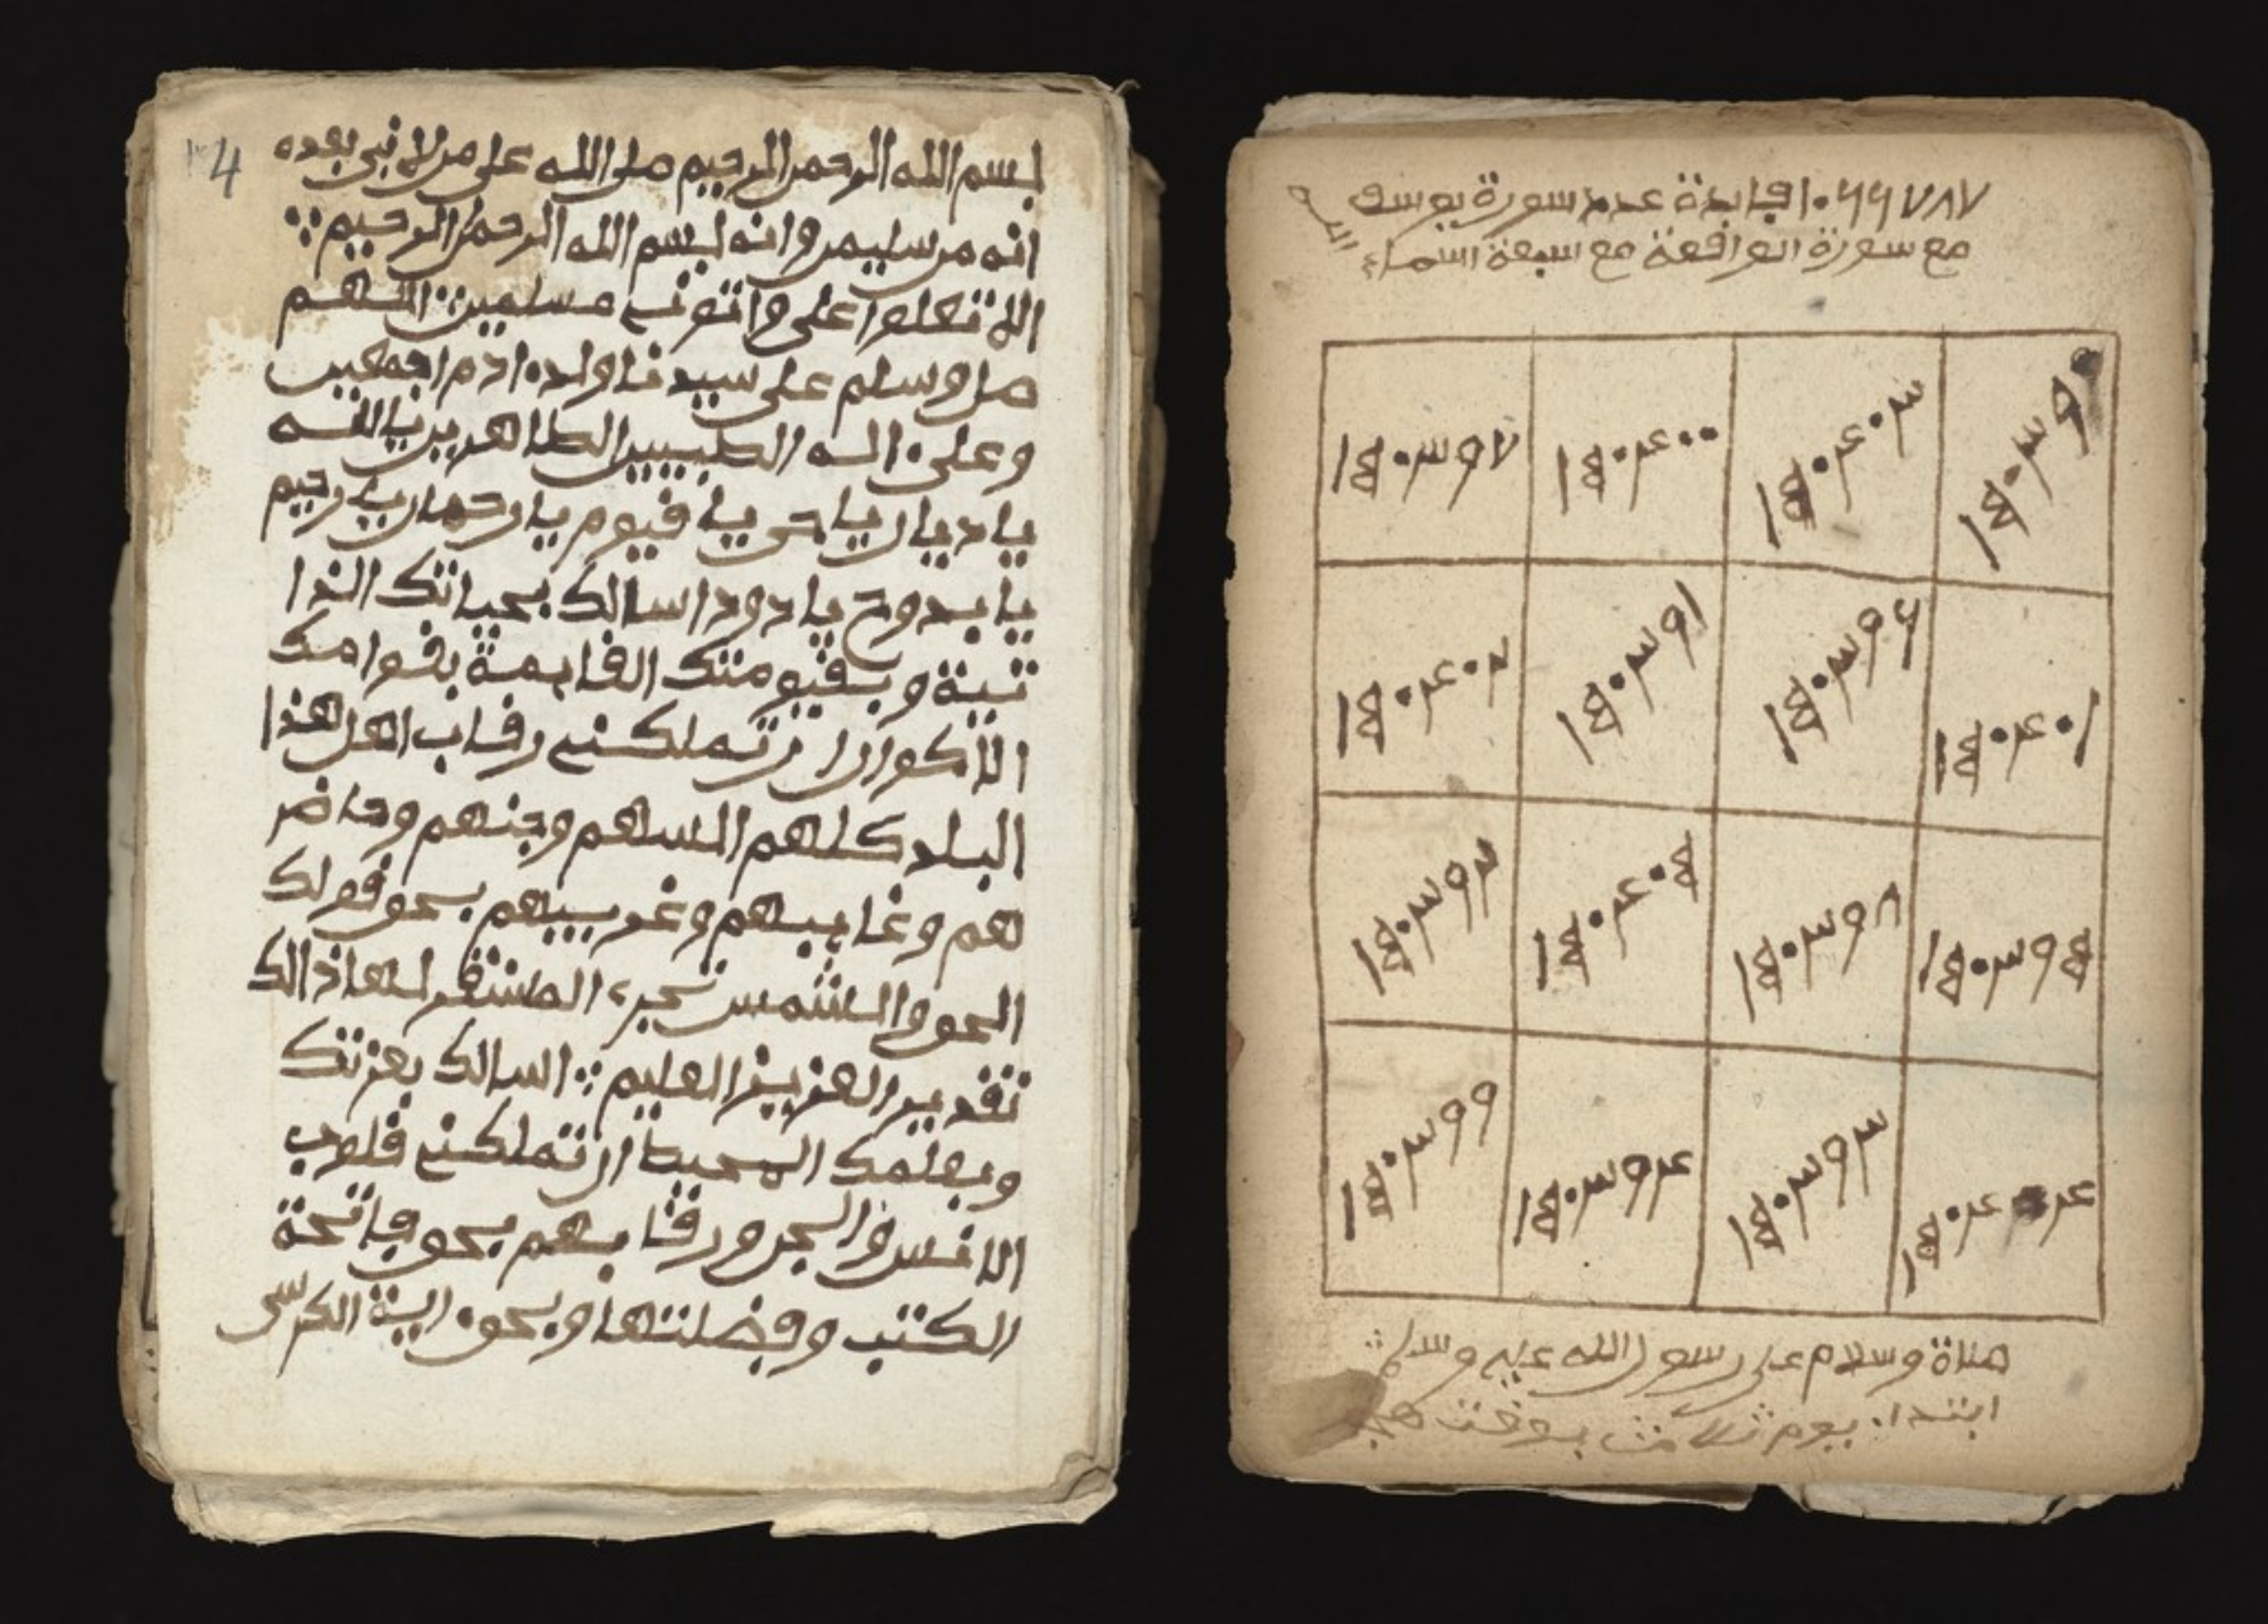 4
بسم الله الرحمن الرحيم صلى الله على من لا نبي بعده
انه من سليمن وانه بسم الله الرحمن الرحيم
الا تعلوا على واتونے مسلمين اللهم
صل وسلم على سيدنا ولد ادم اجمعين
وعلى اله الطيبين الطاهرين يا الله
يا ديان يا حى يا قيوم يا رحمان يا رحيم
يا بدوح يا دود اسالك بحياتك
وبقيومتك القايمة بقوامك
الاكوان ان تملكنے رقاب اهل هذا
البلد كلهم انسهم وجنهم وحاضر
هم وغايبهم وغريبهم بحق قولك
الحق والشمس تجرے لمستقر لها ذالك
تقدير العزيز العليم اسالك بعزتك
وبعلمك المحيط ان تملكنے قلوب
الانس والجن ورقابهم بحق فاتحة
الكتب وفضلتها وبحق اية الكرسى
فايدة عدد سورة يوسف
مع سورة الواقعة مع اسبعة اسماء
١٥٠٣٩٧ ١٥٠٤٠٠ ١٥٠٤٠٣ ١٥٠٣٩٠
١٥٠٤٠٢ ١٥٠٣٩١ ١٥٠٣٩٦ ١٥٠٤٠١
١٥٠٣٩٢ ١٥٠٤٠٥ ١٥٠٣٩٨ ١٥٠٣٩٥
١٥٠٣٩٩ ١٥٠٣٩٤ ١٥٠٣٩٣ ١٥٠٤٠٤
صلاة وسلام على رسول الله عليه وسلم
ابتدا يوم ثلاث بوقت